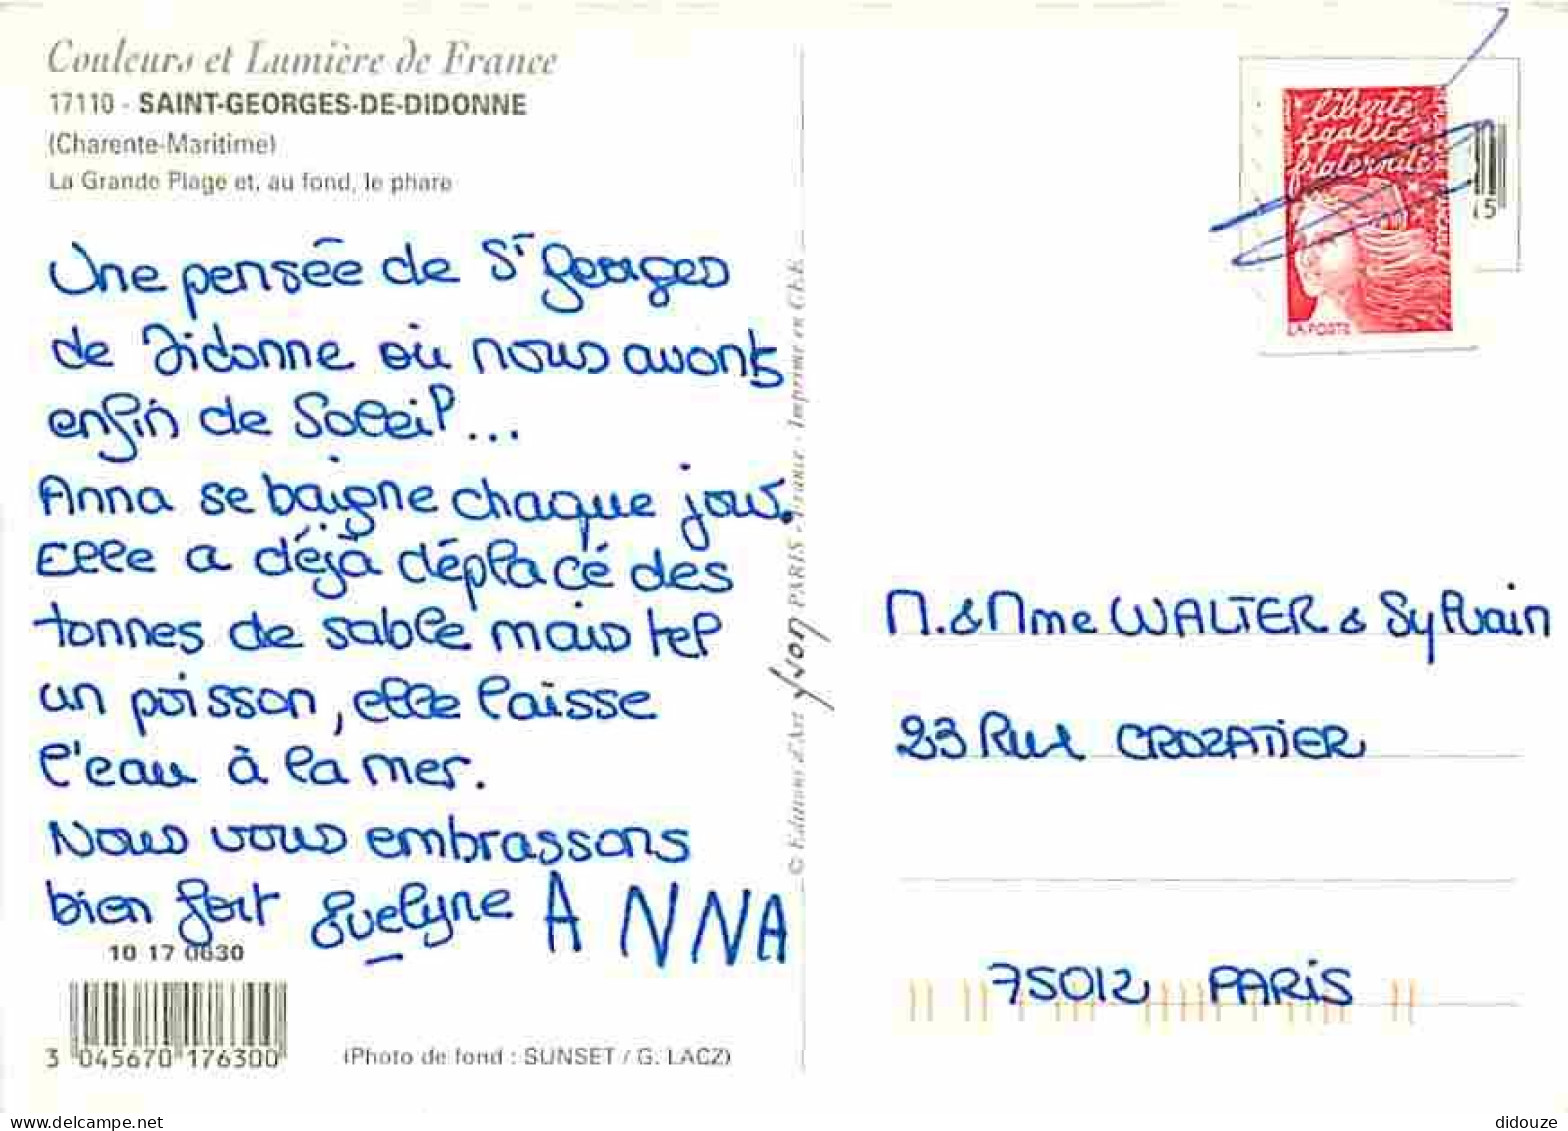 Couleurs et Lumière de France
17110 - SAINT-GEORGES-DE-DIDONNE
(Charente-Maritime)
La Grande Plage et, au fond, le phare
Une pensée de St Georges
de Didonne où nous avons
enfin de Soleil...
Anna se baigne chaque jour.
Elle a déjà déplacé des
tonnes de sable mais tel
un poisson, elle laisse
l'eau à la mer.
Nous vous embrassons
bien fort Evelyne ANNA
10 17 0630
3 045670 176300
(Photo de fond : SUNSET / G. LACZ)
© Editions d'Art Yvon PARIS - France - Imprimé en C.E.E.
liberté
égalité
fraternité
LA POSTE
45
M. & Mme WALTER & Sylvain
23 Rue CROZATIER
75012 PARIS
didouze